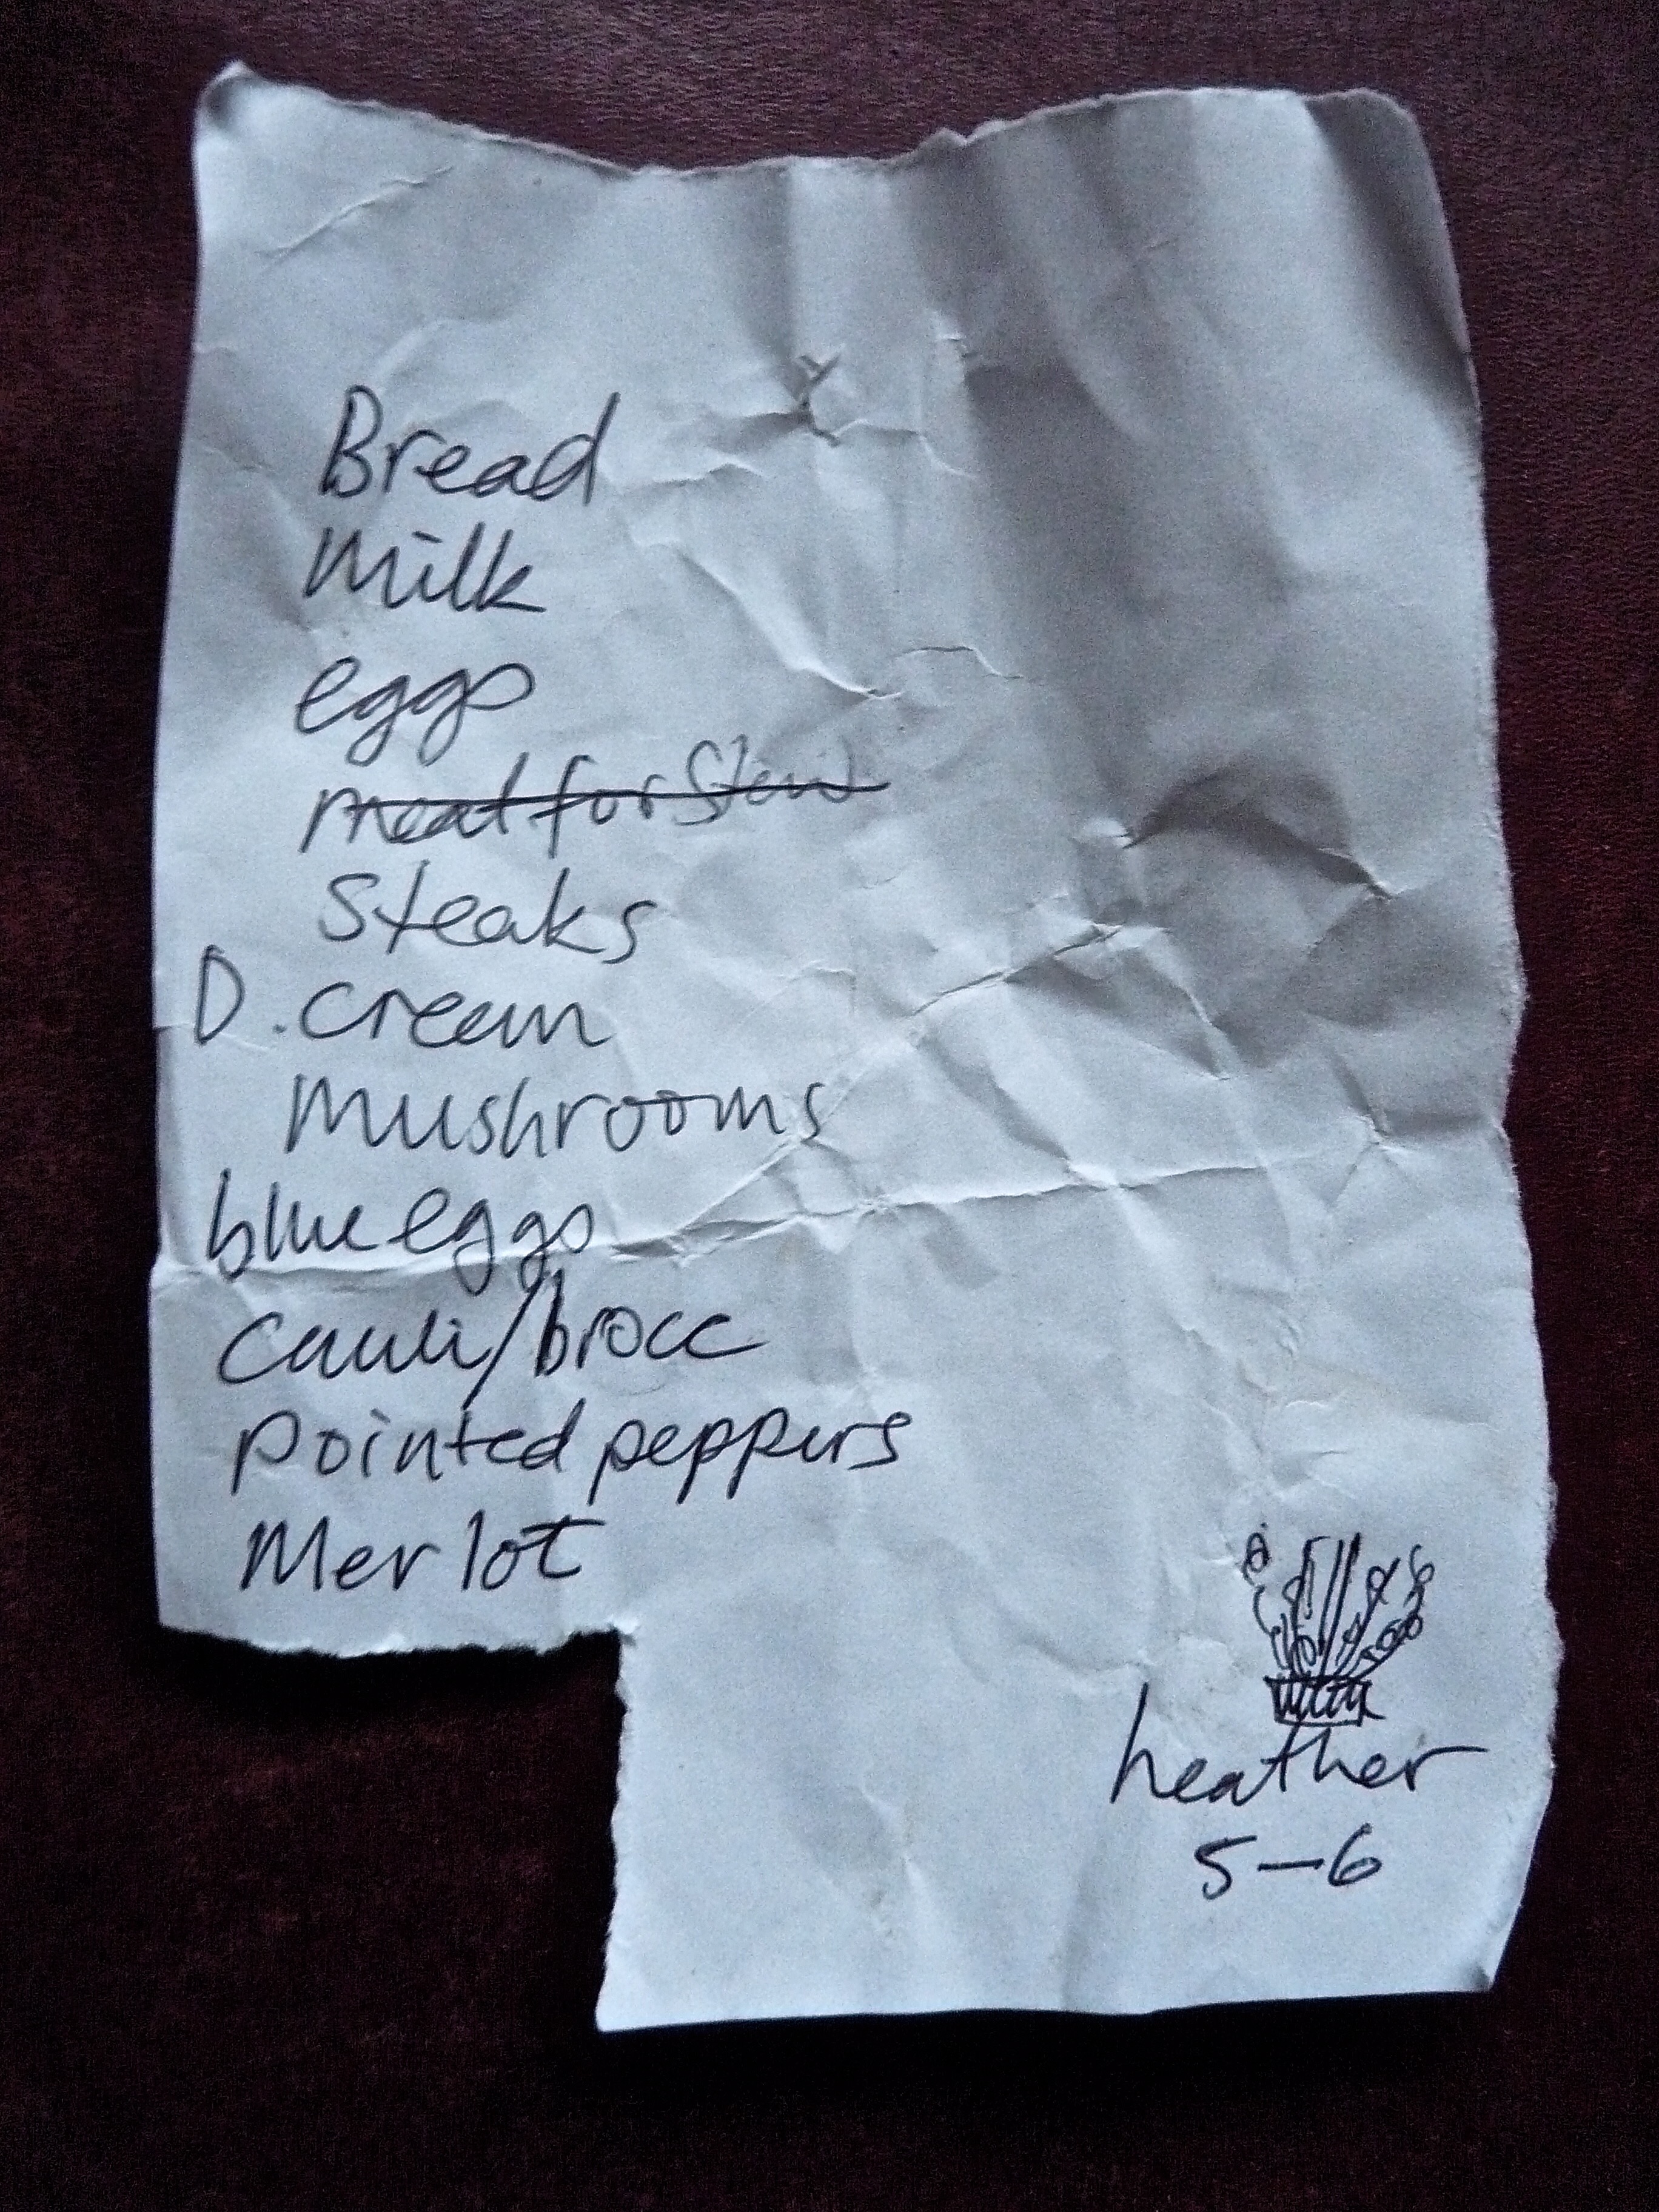 Bread
Milk
eggs
meat for Stew
Steaks
D. cream
Mushrooms
blue eggs
cauli/brocc
pointed peppers
Merlot
heather
5-6